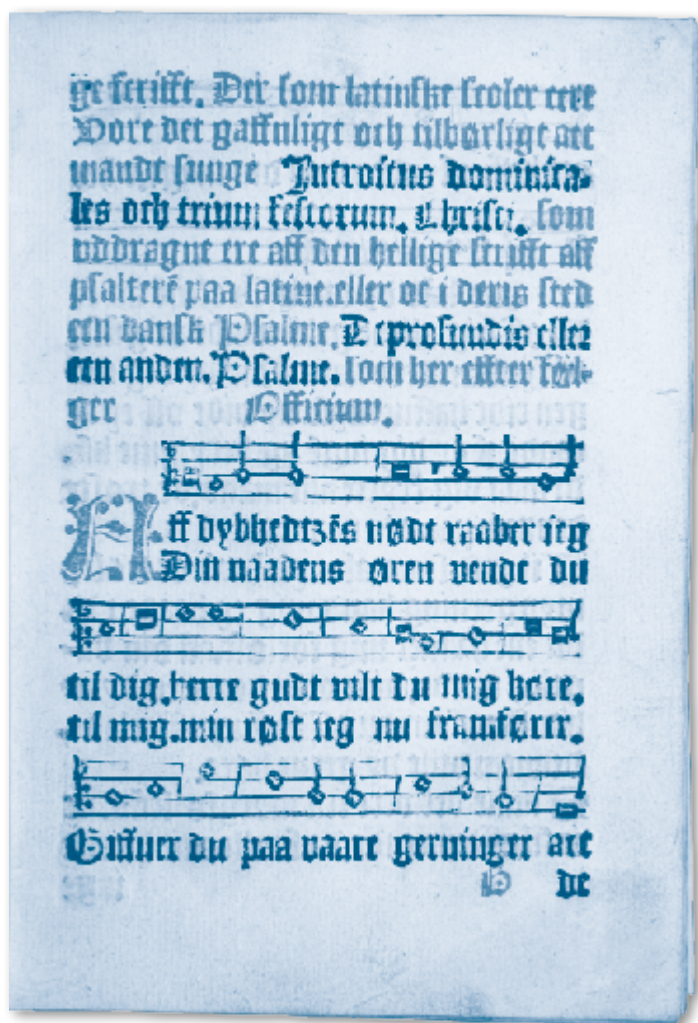 ge scrifft. Der som latinske scoler ere
Vore det gaffnligt och tilbørligt att
mandt sunge Introitus dominica-
les och trium festorum. Christi. som
vddragne ere aff den hellige scrifft aff
psalterē paa latine.eller oc i deris sted
een dansk Psalme. De profundis eller
een anden. Psalme. som her effter føl-
ger Officium.
Aff dybhedtzēs nødt raaber ieg
Din naadens øren vende du
til dig.herre gudt vilt du mig høre.
til mig.min røst ieg nu framfører.
Giffuer du paa vaare gerninger att
b de